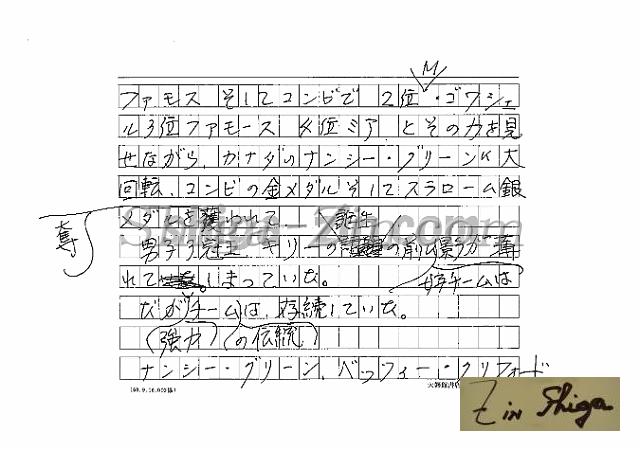 ファモス そしてコンビで 2位 M・ゴワシェ
ル3位ファモース 4位ミア、とその力を見
せながら、カナダのナンシー・グリーンに大
回転、コンビの金メダルそしてスラローム銀
メダルを奪われて
男子3冠王 キリーの の前に影うが薄
れて しまっていた。
女子チームは
だがチームは、存続していた。
(強力)(の伝統)
ナンシー・グリーン、ベッフィー・クリフォード
Shiga-Zin.com
Z in Shiga